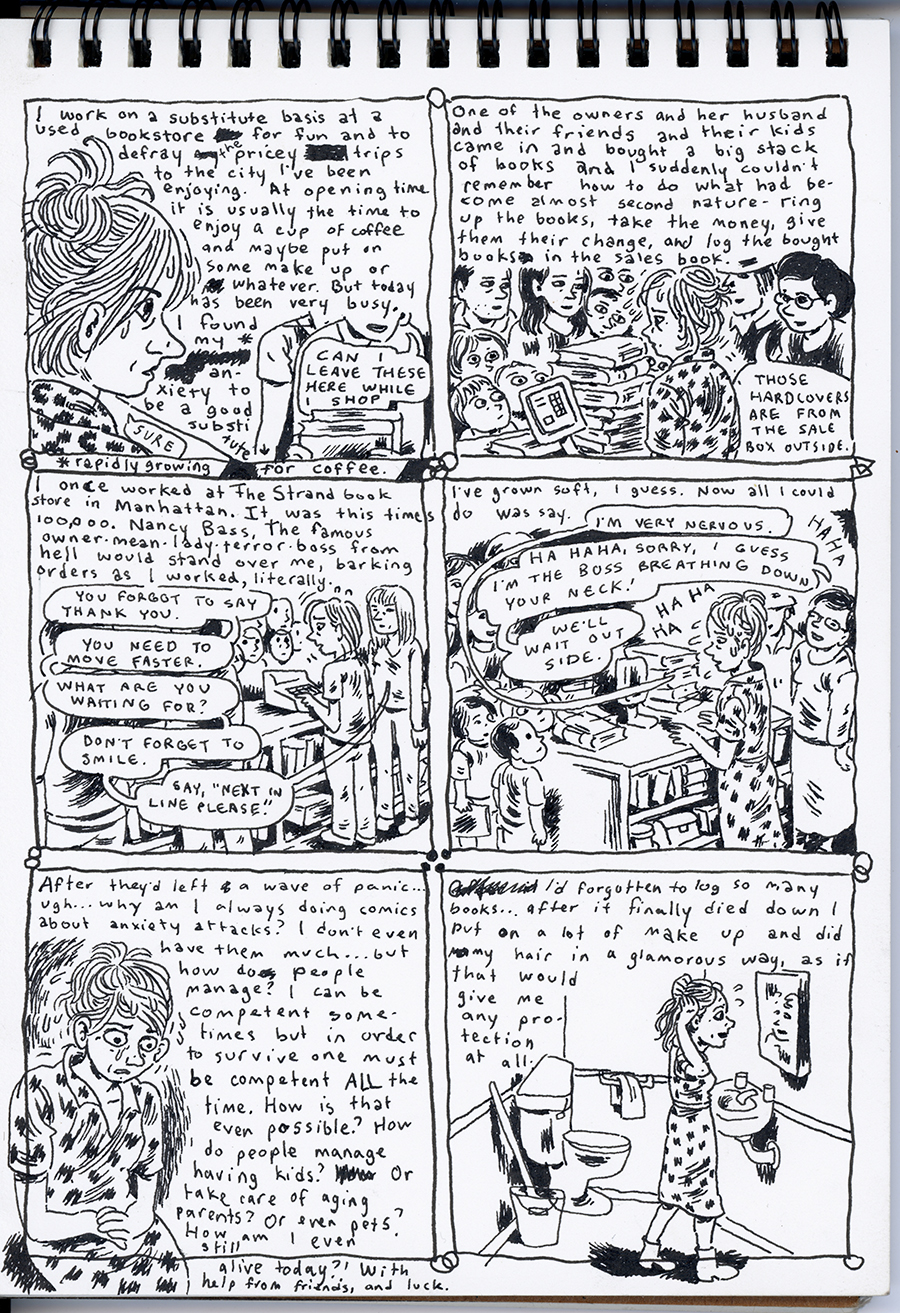 I work on a substitute basis at a
used bookstore for fun and to
defray the pricey trips
to the city I've been
enjoying. At opening time
it is usually the time to
enjoy a cup of coffee
and maybe put on
some make up or
whatever. But today
has been very busy.
I found
my *
an-
xiety to
be a good
substi
tute
SURE
CAN I
LEAVE THESE
HERE WHILE
I SHOP
*rapidly growing
for coffee.
One of the owners and her husband
and their friends and their kids
came in and bought a big stack
of books and I suddenly couldn't
remember how to do what had be-
come almost second nature- ring
up the books, take the money, give
them their change, and log the bought
books in the sales book.
THOSE
HARDCOVERS
ARE FROM
THE SALE
BOX OUTSIDE.
I once worked at The Strand book
store in Manhattan. It was this times
100,000. Nancy Bass, The famous
owner-mean-lady-terror-boss from
hell would stand over me, barking
orders as I worked, literally.
YOU FORGOT TO SAY
THANK YOU.
YOU NEED TO
MOVE FASTER.
WHAT ARE YOU
WAITING FOR?
DON'T FORGET TO
SMILE.
SAY, "NEXT IN
LINE PLEASE."
I've grown soft, I guess. Now all I could
do was say.
I'M VERY NERVOUS.
HA HA
HA HAHA, SORRY, I GUESS
I'M THE BOSS BREATHING DOWN
YOUR NECK!
HA HA
HA
WE'LL
WAIT OUT
SIDE.
After they'd left a wave of panic...
ugh... why am I always doing comics
about anxiety attacks? I don't even
have them much... but
how do people
manage? I can be
competent some-
times but in order
to survive one must
be competent ALL the
time. How is that
even possible? How
do people manage
having kids? Or
take care of aging
parents? Or even pets?
How am I even
still
alive today?! With
help from friends, and luck.
I'd forgotten to log so many
books... after it finally died down I
put on a lot of make up and did
my hair in a glamorous way, as if
that would
give me
any pro-
tection
at all.